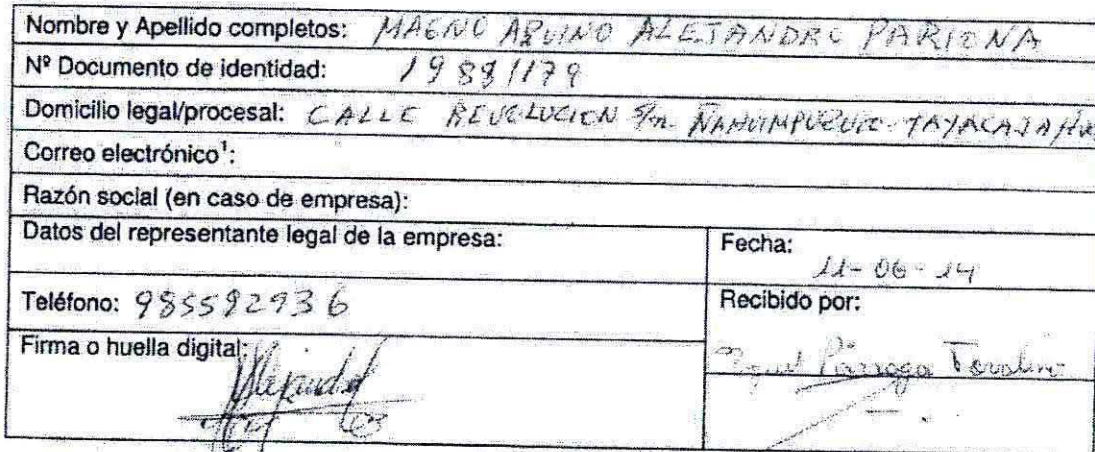 Nombre y Apellido completos: MAGNO AQUINO ALEJANDRO PARIONA
Nº Documento de identidad: 19881179
Domicilio legal/procesal: CALLE REVOLUCION S/n ÑAHUIMPUQUIO-TAYACAJA/
Correo electrónico¹:
Razón social (en caso de empresa):
Datos del representante legal de la empresa:
Fecha:
11-06-14
Teléfono: 985592936
Recibido por:
Párraga
Firma o huella digital: